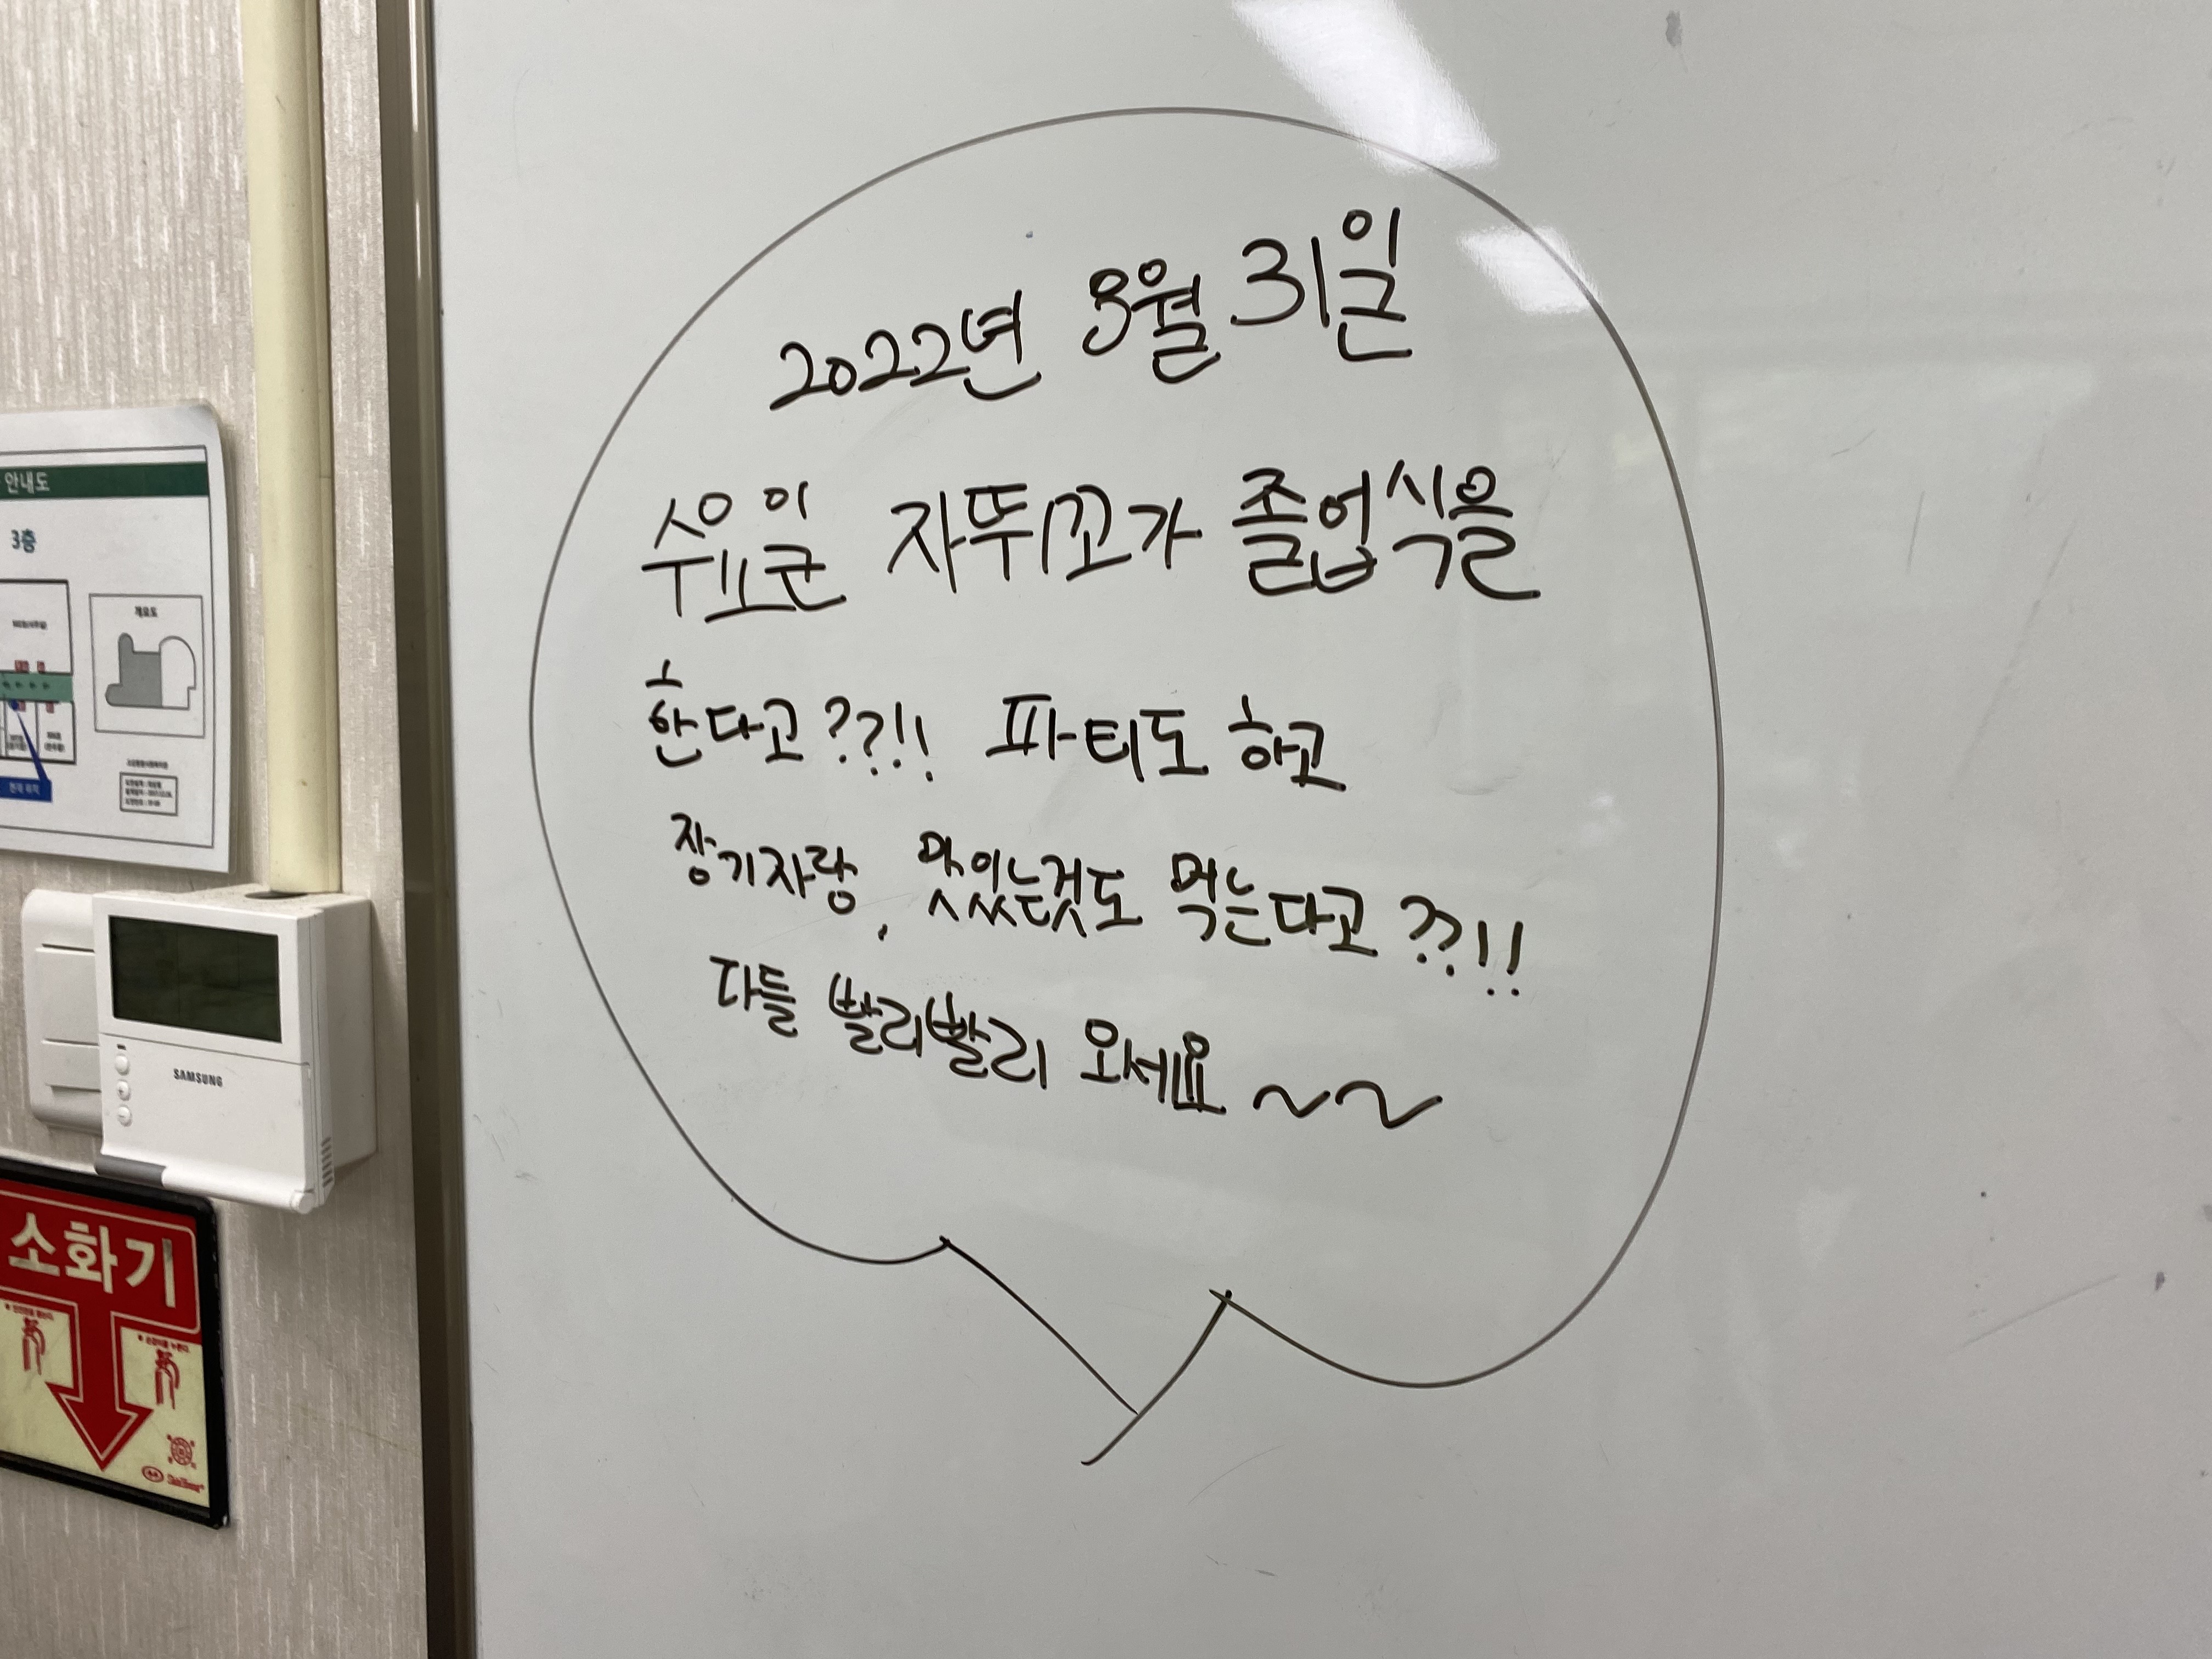 2022년 8월 31일
수요일 자뚜꼬가 졸업식을
한다고??!! 파티도 하고
장기자랑, 맛있는것도 먹는다고??!!
다들 빨리빨리 오세요~~
안내도
3층
개요도
현재 위치
SAMSUNG
소화기